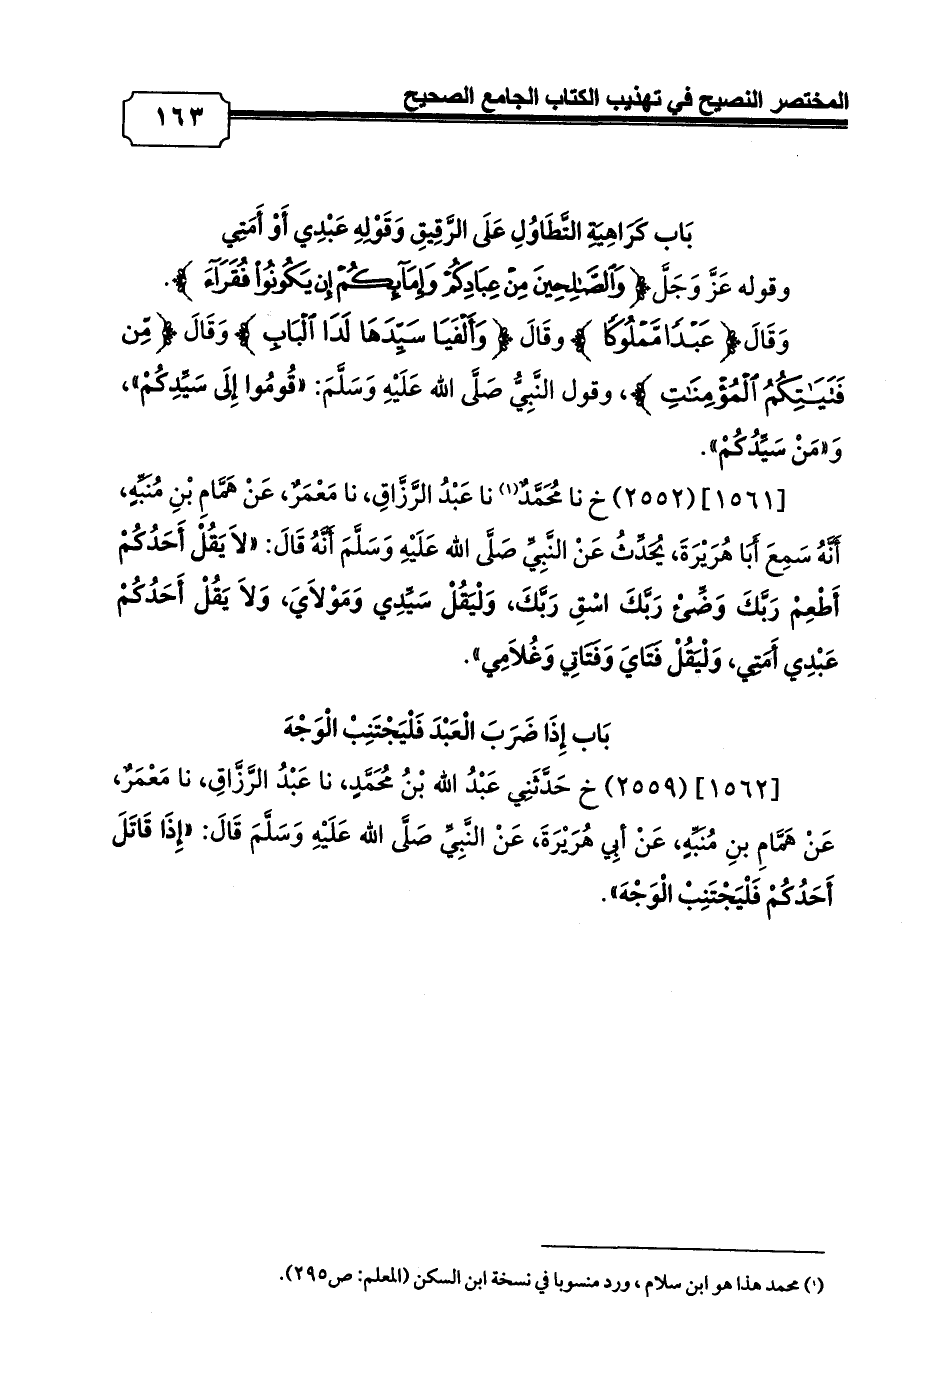 المختصر النصيح في تهذيب الكتاب الجامع الصحيح
١٦٣
بَاب كَرَاهِيَةِ التَّطَاوُلِ عَلَى الرَّقِيقِ وَقَوْلِهِ عَبْدِي أَوْ أَمَتِي
وقوله عَزَّ وَجَلَّ ﴿ وَٱلصَّـٰلِحِينَ مِنْ عِبَادِكُمْ وَإِمَآئِكُمْ إِن يَكُونُوا۟ فُقَرَآءَ ﴾.
وَقَالَ ﴿ عَبْدًا مَّمْلُوكًا ﴾ وقَالَ ﴿ وَأَلْفَيَا سَيِّدَهَا لَدَا ٱلْبَابِ ﴾ وَقَالَ ﴿ مِّن
فَتَيَـٰتِكُمُ ٱلْمُؤْمِنَـٰتِ ﴾، وقول النَّبِيُّ صَلَّى الله عَلَيْهِ وَسَلَّمَ: «قُومُوا إِلَى سَيِّدِكُمْ»،
وَ«مَنْ سَيِّدُكُمْ».
[١٥٦١] (٢٥٥٢) خ نا مُحَمَّدٌ(١) نا عَبْدُ الرَّزَّاقِ، نا مَعْمَرٌ، عَنْ هَمَّامِ بْنِ مُنَبِّهٍ،
أَنَّهُ سَمِعَ أَبَا هُرَيْرَةَ، يُحَدِّثُ عَنْ النَّبِيِّ صَلَّى الله عَلَيْهِ وَسَلَّمَ أَنَّهُ قَالَ: «لاَ يَقُلْ أَحَدُكُمْ
أَطْعِمْ رَبَّكَ وَضِّئْ رَبَّكَ اسْقِ رَبَّكَ، وَلْيَقُلْ سَيِّدِي وَمَوْلاَيَ، وَلاَ يَقُلْ أَحَدُكُمْ
عَبْدِي أَمَتِي، وَلْيَقُلْ فَتَايَ وَفَتَاتِي وَغُلاَمِي».
بَاب إِذَا ضَرَبَ الْعَبْدَ فَلْيَجْتَنِبْ الْوَجْهَ
[١٥٦٢] (٢٥٥٩) خ حَدَّثَنِي عَبْدُ الله بْنُ مُحَمَّدٍ، نا عَبْدُ الرَّزَّاقِ، نا مَعْمَرٌ،
عَنْ هَمَّامِ بنِ مُنَبِّهٍ، عَنْ أبِي هُرَيْرَةَ، عَنْ النَّبِيِّ صَلَّى الله عَلَيْهِ وَسَلَّمَ قَالَ: «إِذَا قَاتَلَ
أَحَدُكُمْ فَلْيَجْتَنِبْ الْوَجْهَ».
(١) محمد هذا هو ابن سلام ، ورد منسوبا في نسخة ابن السكن (المعلم: ص٢٩٥).